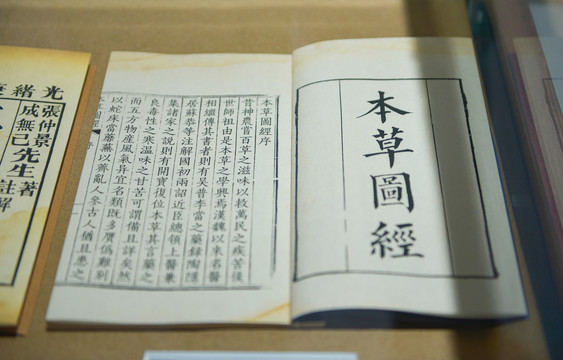 本草圖經
本草圖經序
昔神農嘗百草之滋味以救萬民之疾苦後
世師祖由是本草之學興焉漢魏以來名醫
相繼傳其書者則有吳普李當之藥錄陶隱
居蘇恭等注解國初兩詔近臣總領上醫兼
集諸家之說則有開寶復位本草其言藥之
良毒性之寒溫味之甘苦可謂備且詳矣然
而五方物產風氣異宜名類既多贋偽難別
以蛇床當蘼蕪以薺亂人參古人猶且患之
光緒
張仲景著
成無己先生註解